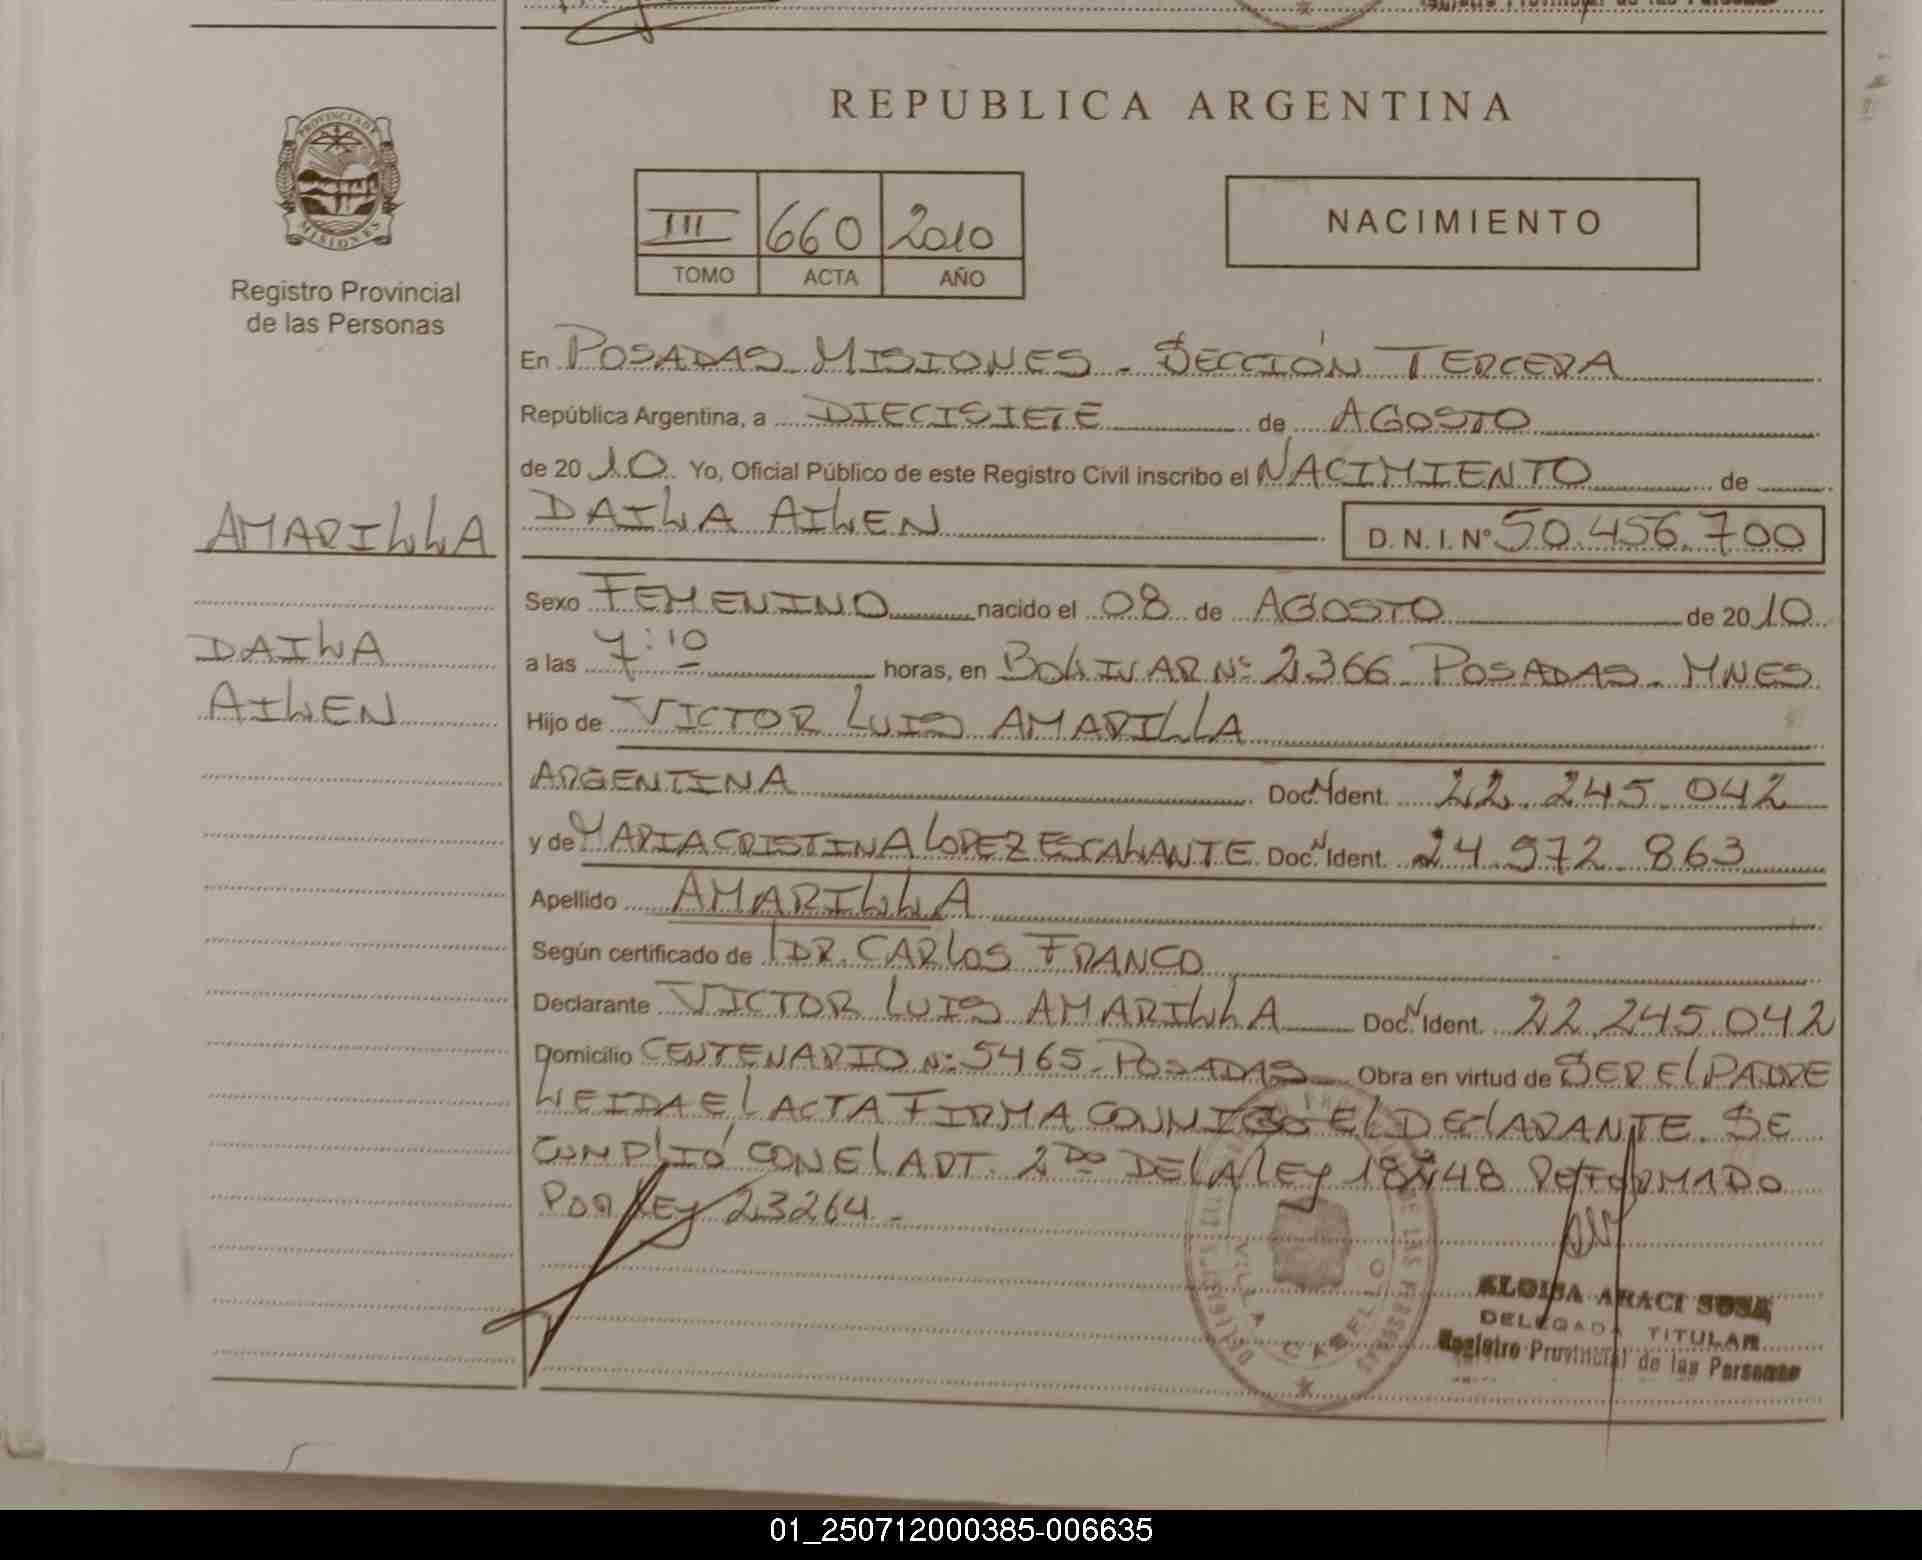 REPUBLICA ARGENTINA
PROVINCIA DE
MISIONES
Registro Provincial
de las Personas
III 660 2010
TOMO ACTA AÑO
NACIMIENTO
En POSADAS MISIONES - SECCIÓN TERCERA
República Argentina, a DIECISIETE de AGOSTO
de 20 10 Yo, Oficial Público de este Registro Civil inscribo el NACIMIENTO de
AMARILLA
DAILA AILEN D.N.I.Nº 50.456.700
Sexo FEMENINO nacido el 08 de AGOSTO de 20 10
DAILA
AILEN
a las 7:10 horas, en BOLIVAR Nº 2366 POSADAS - MNES
Hijo de VICTOR LUIS AMARILLA
ARGENTINA Doc. N Ident. 22.245.042
y de MARIA CRISTINA LOPEZ ESCALANTE Doc. N Ident. 24.972.863
Apellido AMARILLA
Según certificado de DR. CARLOS FRANCO
Declarante VICTOR LUIS AMARILLA Doc. N Ident. 22.245.042
Domicilio CENTENARIO Nº 5465 - POSADAS Obra en virtud de SER EL PADRE
LEIDA EL ACTA FIRMA CONMIGO EL DECLARANTE. SE
CUMPLIÓ CON EL ART. 2DO DE LA LEY 18248 REFORMADO
POR LEY 23264.-
VILLA CABELLO
ELOISA ARACI SOSA
DELEGADA TITULAR
Registro Provincial de las Personas
01_250712000385-006635